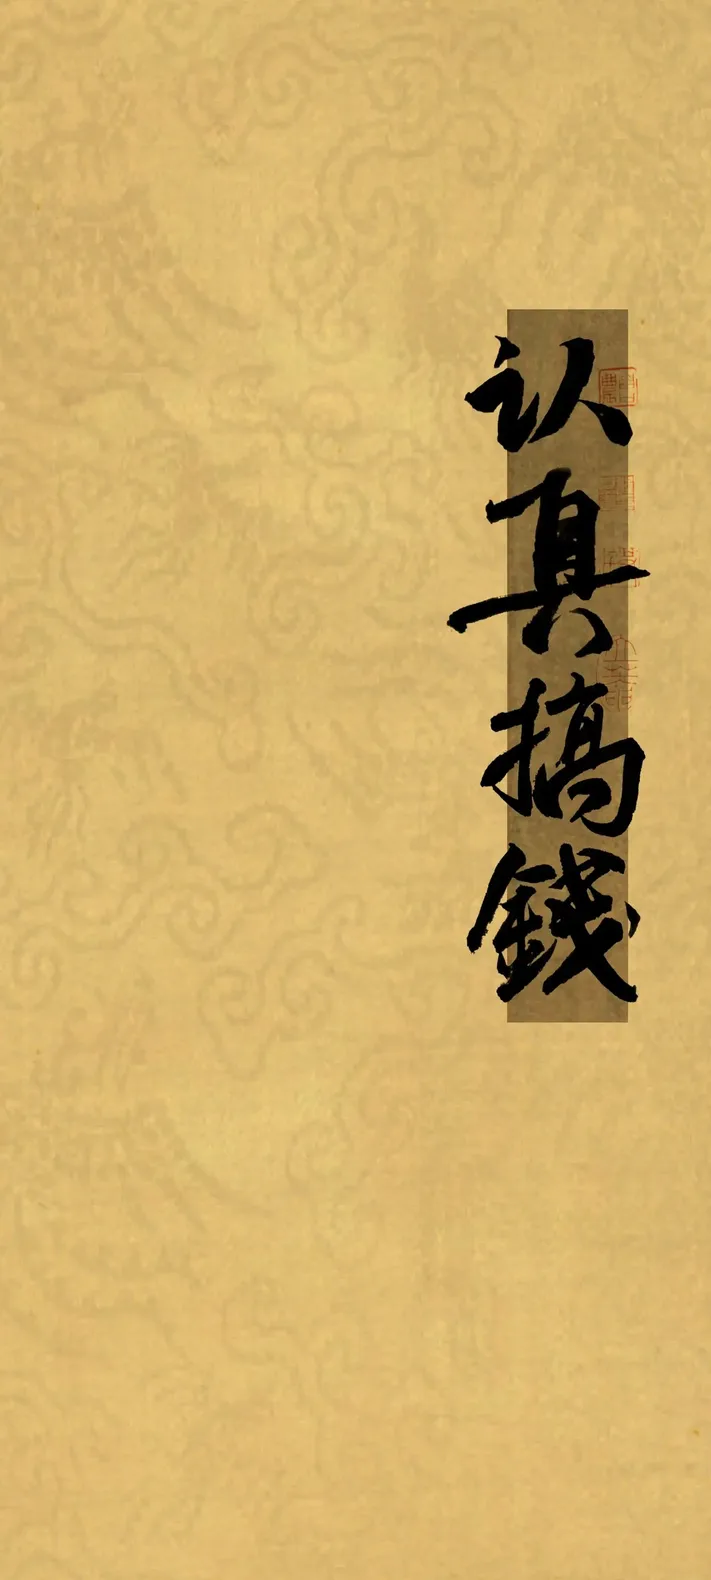 认真搞錢